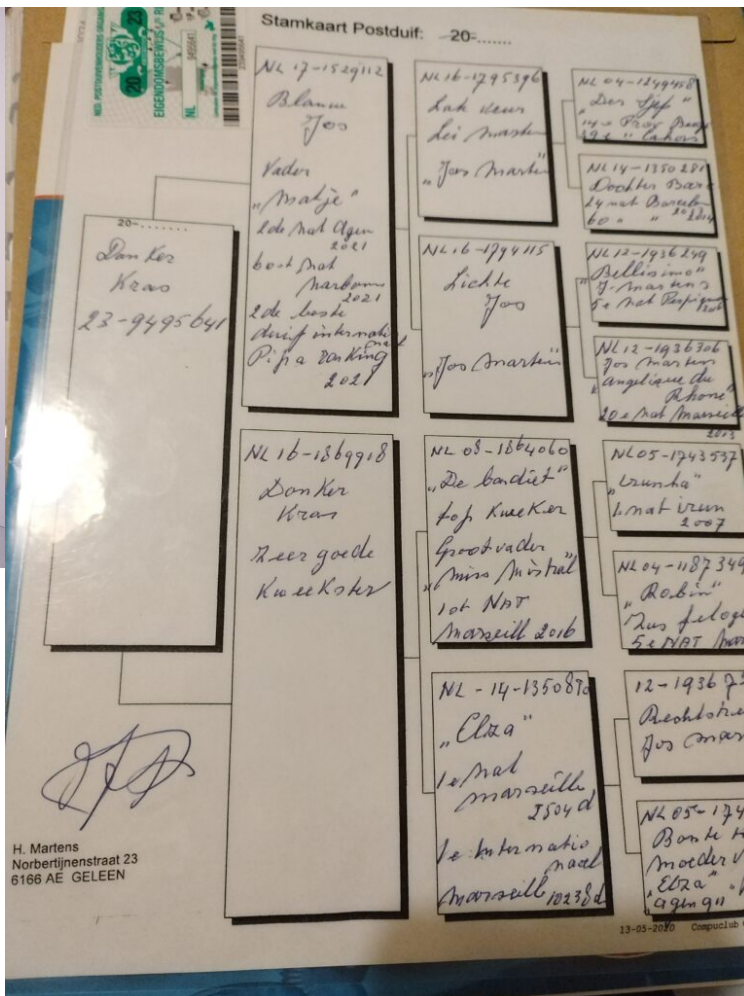 NED. POSTDUIVENHOUDERS ORGANI
20 23
EIGENDOMSBEWIJS
NL
9495641
Stamkaart Postduif: 20-.......
20-.......
Donker
Kras
23-9495641
NL 17-1529112
Blauw
Jos
Vader
"Matje"
2de Nat Agen
2021
60st Nat
Narbonne
2021
2de beste
duif internatio
naal
Pipa ranking
2021
NL 16-1869918
Donker
Kras
Zeer goede
Kweekster
NL 16-1795396
Jos Marten
NL 16-1794115
Lichte
Jos
"Jos Marten"
NL 08-1864060
"De bandiet"
top Kweeker
Grootvader
"Miss Mistral"
1st NAT
Marseill 2016
NL-14-135087
"Elza"
1e Nat
Marseille
2504 d
1e Internatio
naal
Marseille 10238 d
NL 04-1249458
NL 14-1350281
Dochter
24 nat Barcelo
60 " " 2014
NL 12-1936249
"Bellisimo"
J. Martens
5e Nat Perpign
NL 12-1936306
Jos Martens
"angelique du
Rhone"
20e nat Marseill
2013
NL 05-1743537
"Irunha"
1 nat irun
2007
NL 04-1187349
"Robin"
5e NAT Mar
12-19367
Rechtstre
Jos Mar
NL 05-174
Bonte
moeder v
"Elza"
H. Martens
Norbertijnenstraat 23
6166 AE GELEEN
13-05-2020 Compuclub